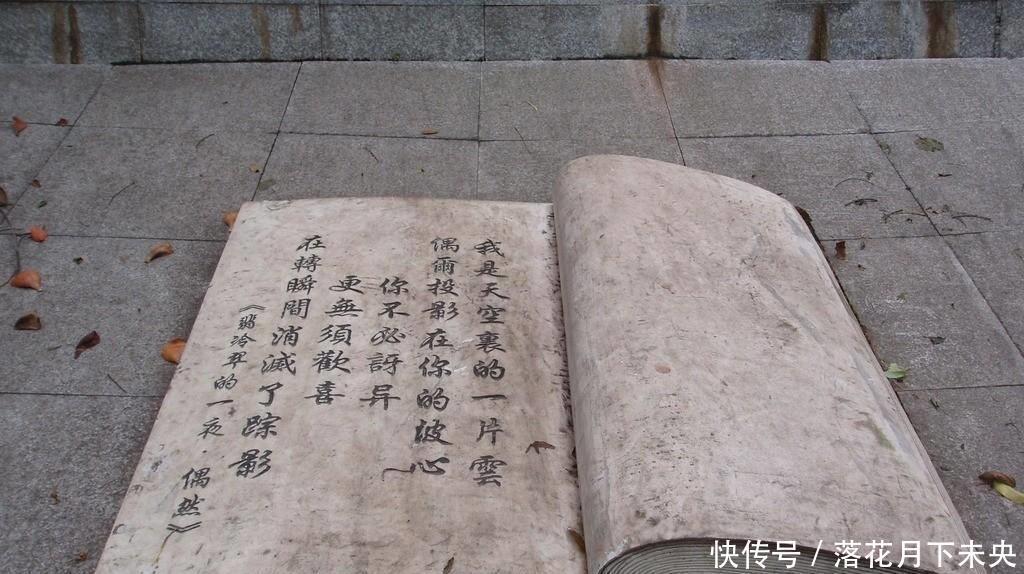 我是天空裏的一片雲
偶爾投影在你的波心
你不必訝异
更無須歡喜
在轉瞬間消滅了踪影
《翡冷翠的一夜·偶然》
快传号 / 落花月下未央